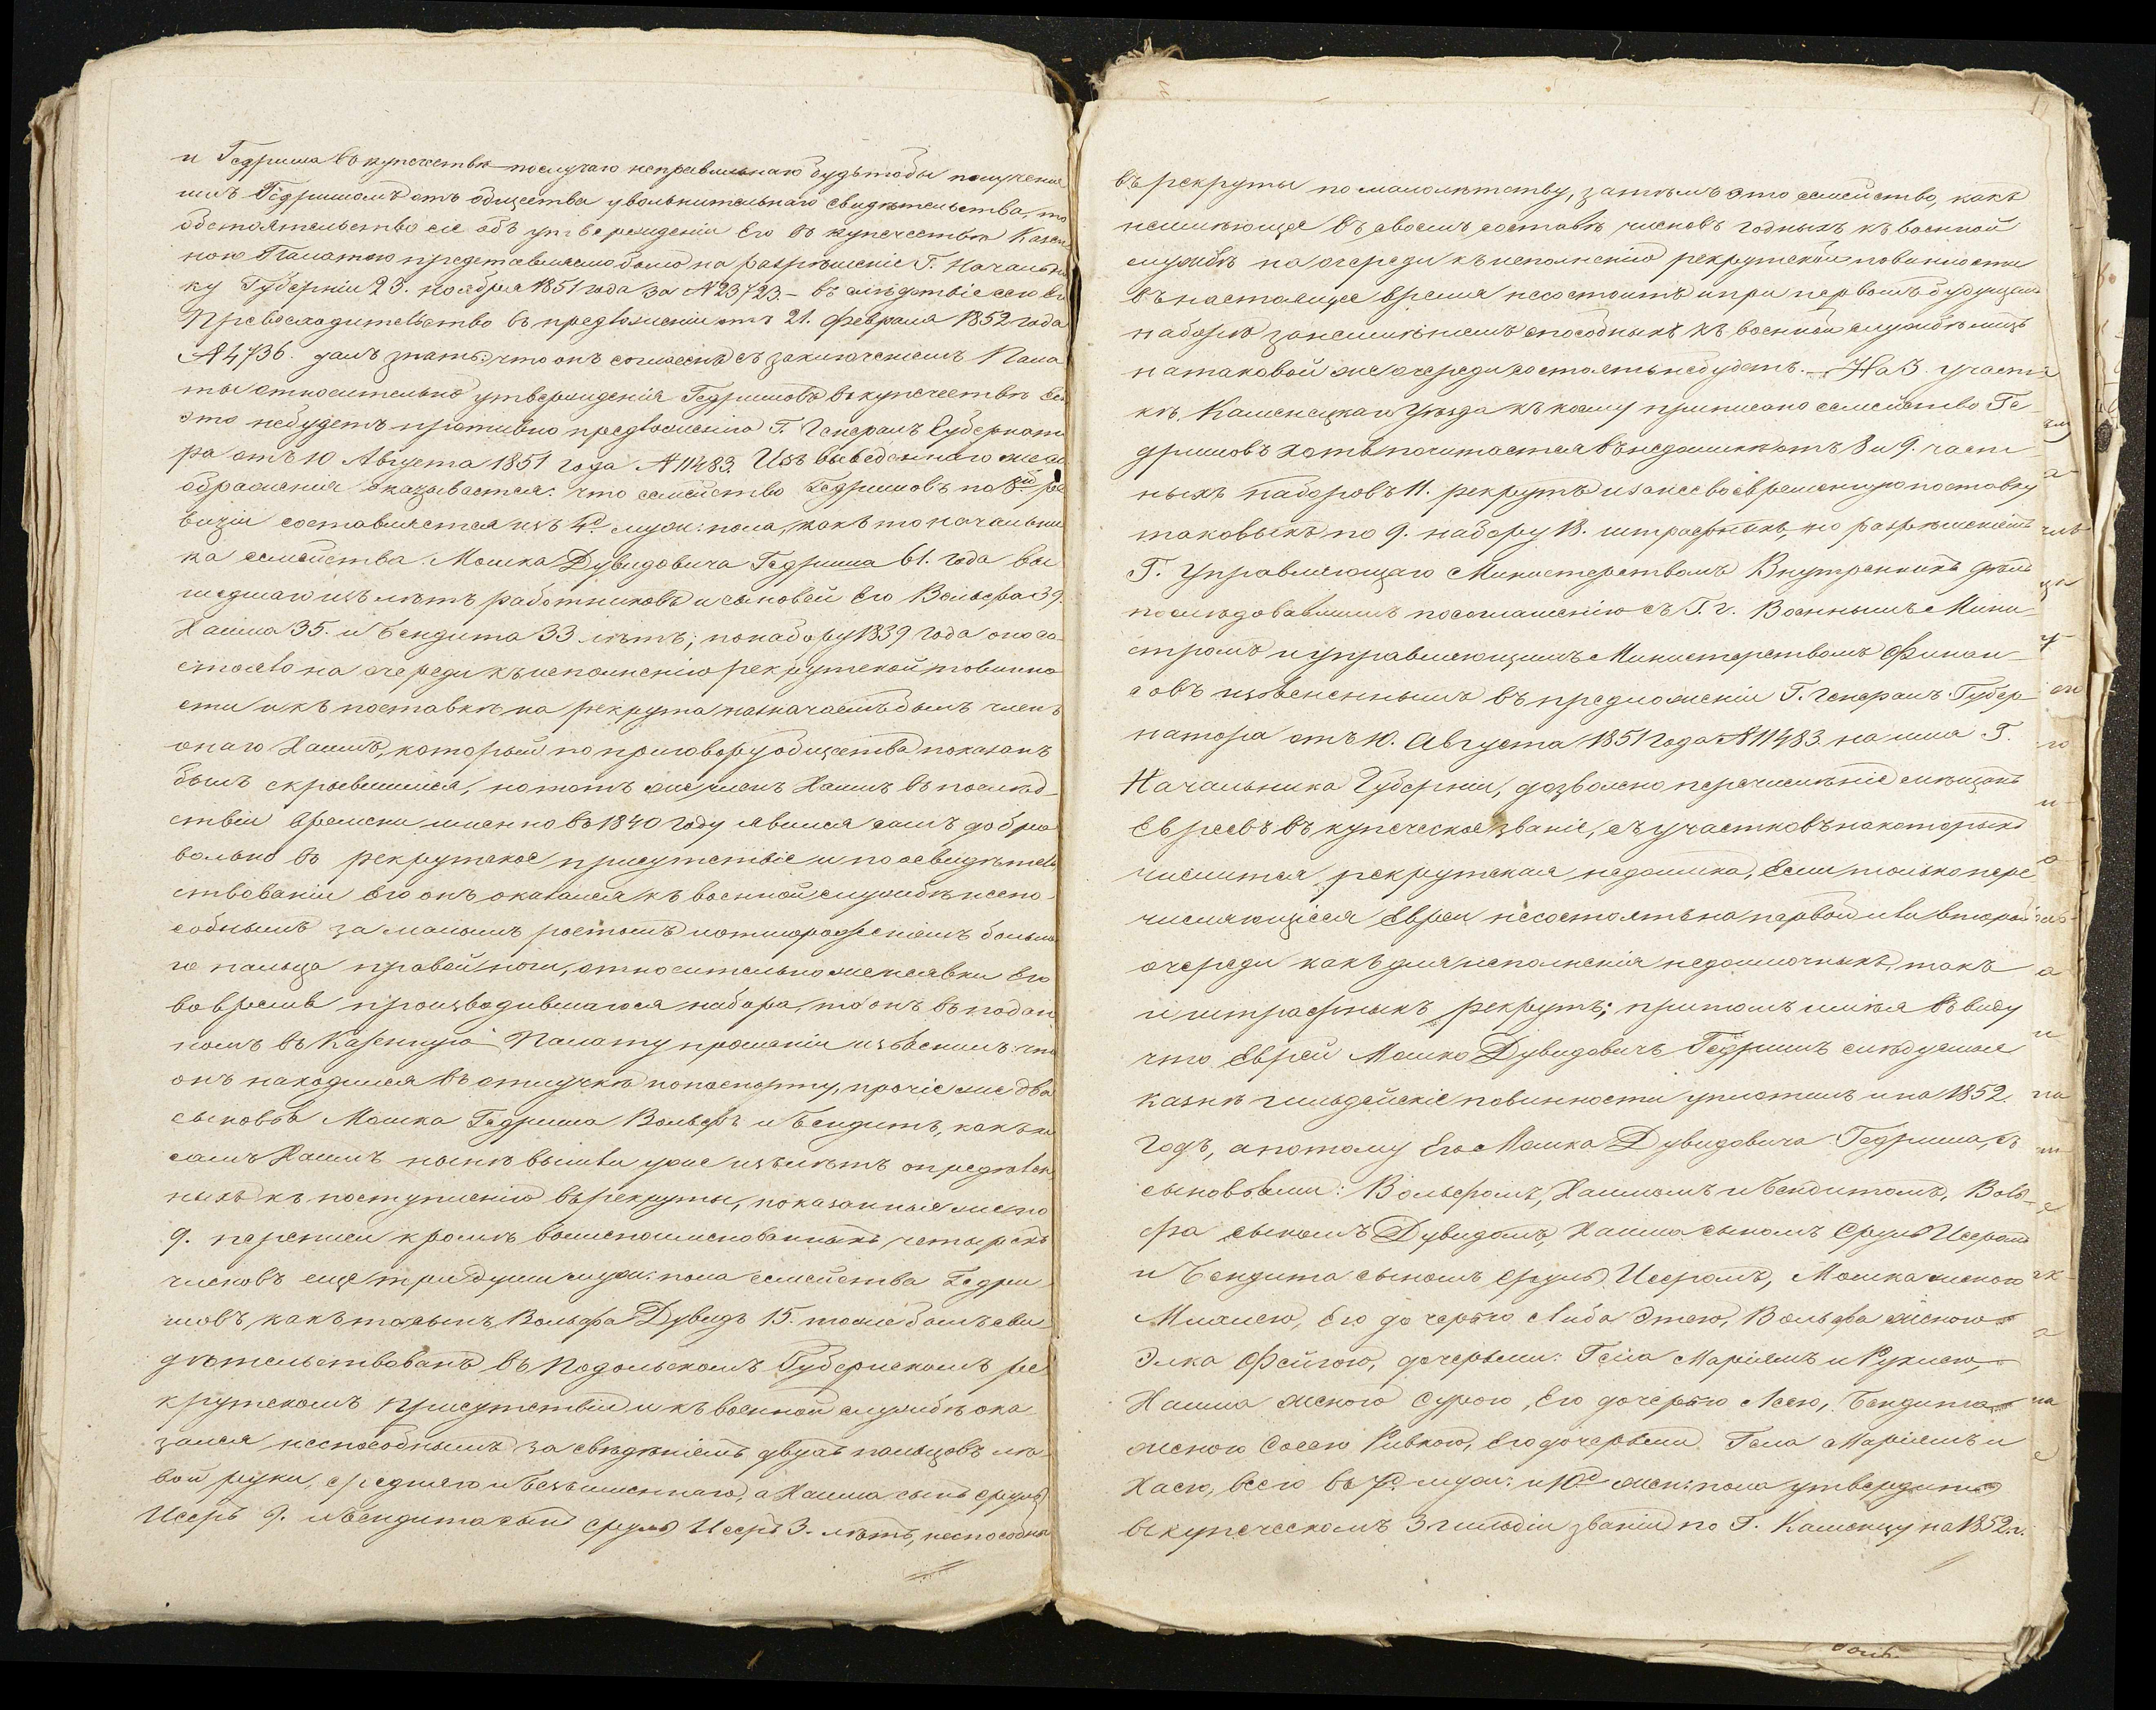 и Гедриша въ купечествѣ послучаю неправильнаго будьтобы полученія
имъ Гедришомъ отъ общества увольнительнаго свидѣтельства, то
обстоятельство сіе объ утвержденіи Его въ купечествѣ Казен
ною Палатою представляемо было на разрѣшеніе Г. Началь
ку Губерніи 25. ноября 1851 года за № 23723. – въ слѣдствіе сего Его
Превосходительство въ предложеніи отъ 21. Февраля 1852 года
№ 4736. далъ знать: что онъ согласенъ съ заключеніемъ Пала
ты относительно утвержденія Гедришовъ въ купечествѣ если
это небудетъ противно предложенію Г. Генералъ Губернато
ра отъ 10 Августа 1851 года № 11483. Изъ выведеннаго же со
ображенія оказывается: что семейство Гедришовъ по 8й ре
визіи составляется изъ 4д муж: пола, какъ то начальни
ка семейства Мошка Дувидовича Гедриша 61. года вы
шедшаго изъ лѣтъ работниковъ и сыновей Его Вольфа 39.
Хаима 35. и Бендита 33 лѣтъ; понабору 1839 года оно со
стояло на очереди къ исполненію рекрутской повинно
сти и къ поставкѣ на рекрута назначаемъ былъ членъ
онаго Хаимъ, который по приговору общества показанъ
былъ скрывшимся, но тотъ же членъ Хаимъ въ послѣд
ствіи времени именно въ 1840 году явился самъ добро
вольно въ рекрутское присутствіе и по освидѣтель
ствованіи Его онъ оказался къ военной службѣ неспо
собнымъ за малымъ ростомъ и отмороженіемъ больша
го пальца правой ноги, относительно же неявки Его
во время производившагося набора, то онъ въ подан
номъ въ Казенную Палату прошеніи изъяснилъ: что
онъ находился въ отлучкѣ по паспорту, прочіе же два
сыновья Мошка Гедриша Вольфъ и Бендитъ, какъ и
самъ Хаимъ нынѣ вышли уже изъ лѣтъ опредѣлен
ныхъ къ поступленію въ рекруты, показанные же по
9. переписи кромѣ вышепоименованныхъ четырехъ
членовъ еще три души муж: пола семейства Гедри
шовъ, какъ то сынъ Вольфа Дувидъ 15. тоже былъ сви
дѣтельствованъ въ Подольскомъ Губернскомъ ре
крутскомъ присутствіи и къ военной службѣ ока
зался неспособнымъ за сведеніемъ двухъ пальцовъ лѣ
вой руки, средняго и безъименнаго, а Хаима сынъ Сруль
Исеръ 9. и Бендита сынъ Сруль Исеръ 3. лѣтъ, неспособны
въ рекруты по малолѣтству, затѣмъ это семейство, какъ
неимѣющее въ своемъ составѣ членовъ годныхъ къ военной
службѣ на очереди къ исполненію рекрутской повинности
въ настоящее время несостоитъ и при первомъ будущемъ
наборѣ занеимѣніемъ способныхъ къ военной службѣ лицъ
на таковой же очереди состоять небудетъ. – На 3. участ
кѣ Каменецкаго уѣзда къ коему приписано семейство Ге
дришовъ хоть почитается въ недоимкѣ отъ 8 и 9. част
ныхъ наборовъ 11. рекрутъ и за несвоевременную поставку
таковыхъ по 9. набору 13. штрафныхъ, но разрѣшеніемъ
Г. Управляющаго Министерствомъ Внутреннихъ Дѣлъ
послѣдовавшимъ по соглашенію съ Г. г. Военнымъ Мини
стромъ и управляющимъ Министерствомъ Финан
совъ изъясненнымъ въ предложеніи Г. Генералъ Губер
натора отъ 10. Августа 1851 года № 11483. на имя Г.
Начальника Губерніи, дозволено перечисленіе мѣщанъ
Евреевъ въ купеческое званіе, съ участковъ на которыхъ
числится рекрутская недоимка, Если только пере
числяющіеся Евреи несостоятъ на первой или второй
очереди какъ для исполненія недоимочныхъ, такъ
и штрафныхъ рекрутъ; притомъ имѣя въ виду
что Еврей Мошко Дувидовичъ Гедришъ слѣдуемые
казнѣ гильдейскіе повинности уплотилъ и на 1852.
годъ, а потому Его Мошка Дувидовича Гедриша, съ
сыновьями: Вольфомъ, Хаимомъ и Бендитомъ, Воль
фа сыномъ Дувидомъ, Хаима сыномъ Сруль Исеромъ
и Бендита сыномъ Сруль Исеромъ, Мошка женою
Милкею, Его дочерью Либа Этею, Вольфа женою
Элка Фейгою, дочерьми: Гейа Маріямъ и Рухлею,
Хаима женою Сурою, Его дочерью Лею, Бендита
женою Сосею Ривкою, Его дочерьми Гела Маріямъ и
Хаею, всего въ 7д. муж: и 10д жен: пола утвердить
въ купеческомъ 3 гильдіи званіи по Г. Каменцу на 1852. г.